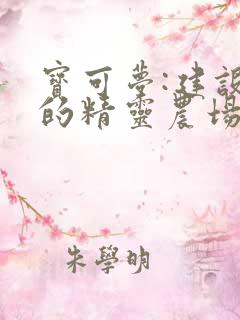 寶可夢:建設
的精靈農場
朱學明